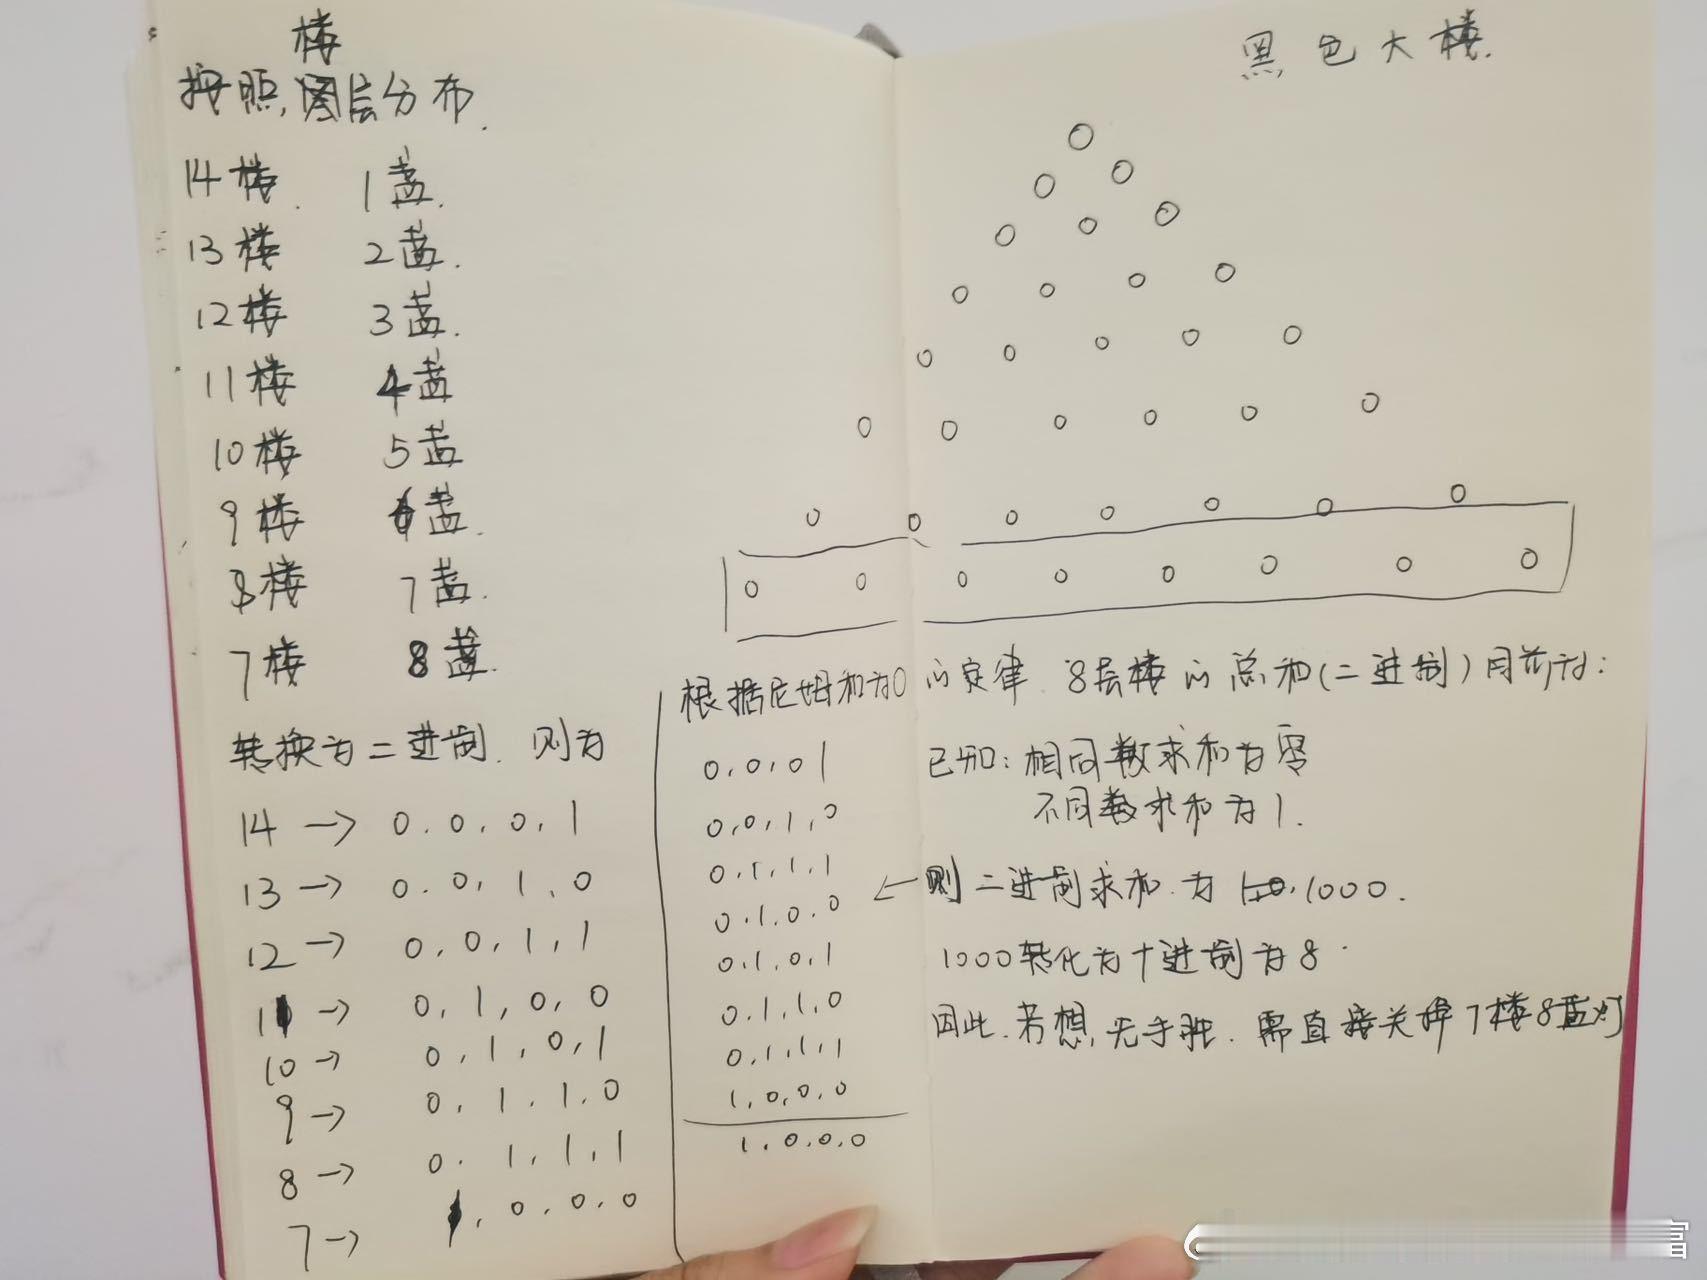 楼
按照图层分布.
14楼. 1盏.
13楼 2盏.
12楼 3盏.
11楼 4盏
10楼 5盏
9楼 6盏.
8楼 7盏.
7楼 8盏.
转换为二进制.则为
14→ 0.0,0,1
13→ 0.0,1,0
12→ 0,0,1,1
11→ 0,1,0,0
10→ 0,1,0,1
9→ 0,1,1,0
8→ 0.1,1,1
7→ 1,0,0,0
黑色大楼.
根据尼姆和为0的定律.8层楼的总和(二进制)用前为:
0,0,0,1
0,0,1,0
0,1,1,1
0,1,0,0
0,1,0,1
0,1,1,0
0,1,1,1
1,0,0,0
1,0,0,0
已知:相同数求和为零
不同数求和为1.
←则二进制求和.为1000.
1000转化为十进制为8.
因此.若想,先手胜.需直接关掉7楼8盏灯